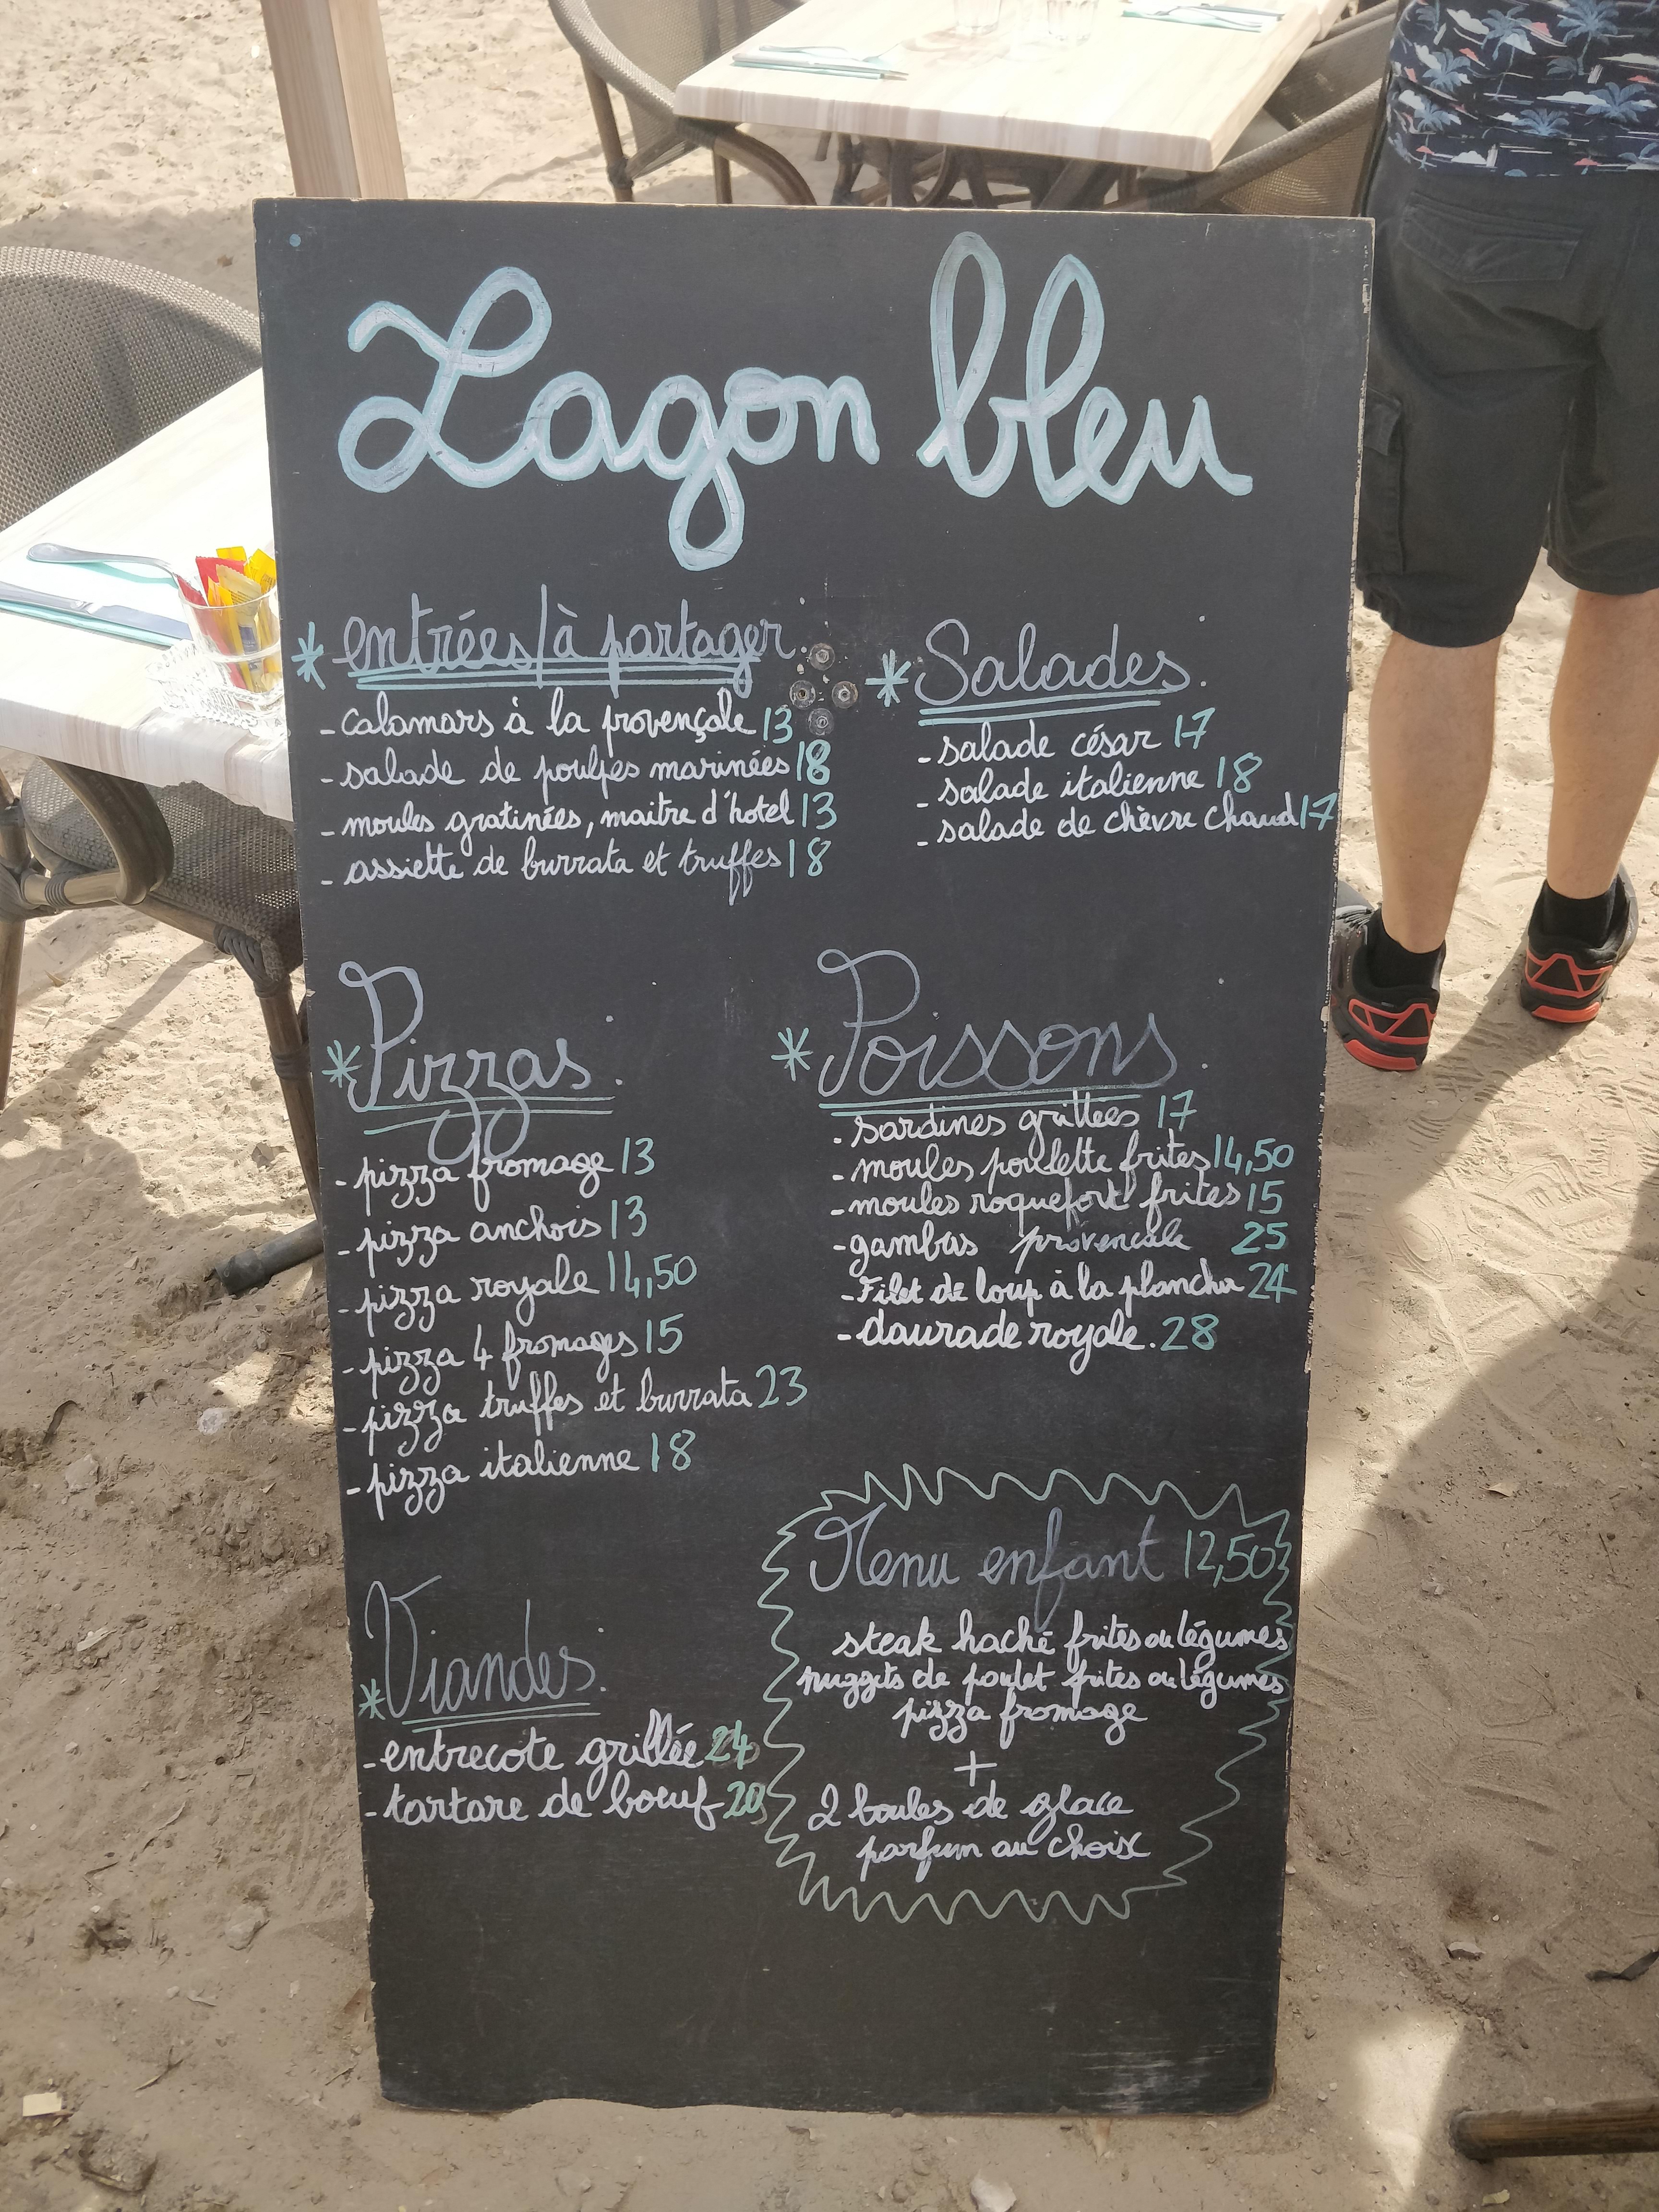 Lagon bleu
entrées/à partager.
- calamars à la provençale 13
- salade de poulpes marinées 18
- moules gratinées, maitre d'hotel 13
- assiette de burrata et truffes 18
Salades.
- salade césar 17
- salade italienne 18
- salade de chèvre chaud 17
Pizzas.
- pizza fromage 13
- pizza anchois 13
- pizza royale 14,50
- pizza 4 fromages 15
- pizza truffes et burrata 23
- pizza italienne 18
Poissons.
- sardines grillées 17
- moules poulette frites 14,50
- moules roquefort frites 15
- gambas provencale 25
- Filet de loup à la plancha 24
- daurade royale. 28
Viandes.
- entrecote grillée 24
- tartare de boeuf 20
Menu enfant 12,50
steak haché frites ou légumes
nuggets de poulet frites ou légumes
pizza fromage
+
2 boules de glace
parfum au choix